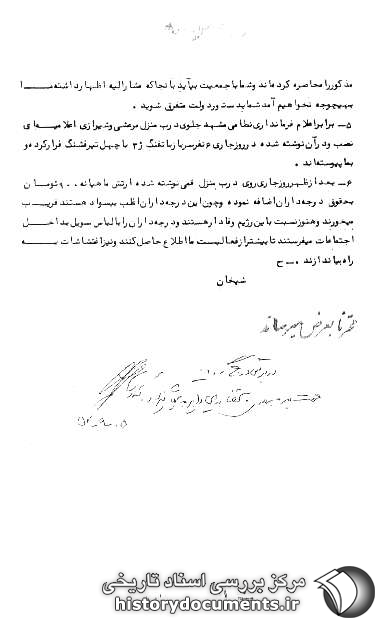 مذکوررا محاصره کرده اند وشما با جمعیت بیائید با نجا که مشارالیه اظهارداشته ما
بهیچوجه نخواهیم آمد شما بدستور دولت متفرق شوید .
۵ـ برابراعلام فرمانداری نظامی مشهد جلوی درب منزل مرعشی وشیرازی اعلامیه ای
نصب ودرآن نوشته شده درروزجاری ۶ نفرسربازبا تفنگ ژ۳ با چهل تیرفشنگ فرارکرده و
بما پیوسته اند .
۶ـ بعدازظهرروزجاری روی درب منزل قمی نوشته شده ارتش ماهیانه تومان
بحقوق درجه داران اضافه نموده وچون این درجه داران اغلب بیسواد هستند فریب
میخورند وهنوزنسبت با ین رژیم وفادارهستند ودرجه داران را با لباس سویل بداخل
اجتماعات میفرستند تا بیشترازفعالیت ما اطلاع حاصل کنند ونیزاغتشاشات به
راه بیاندازند . ح
شیخان
مرکز بررسی اسناد تاریخی
historydocuments.ir